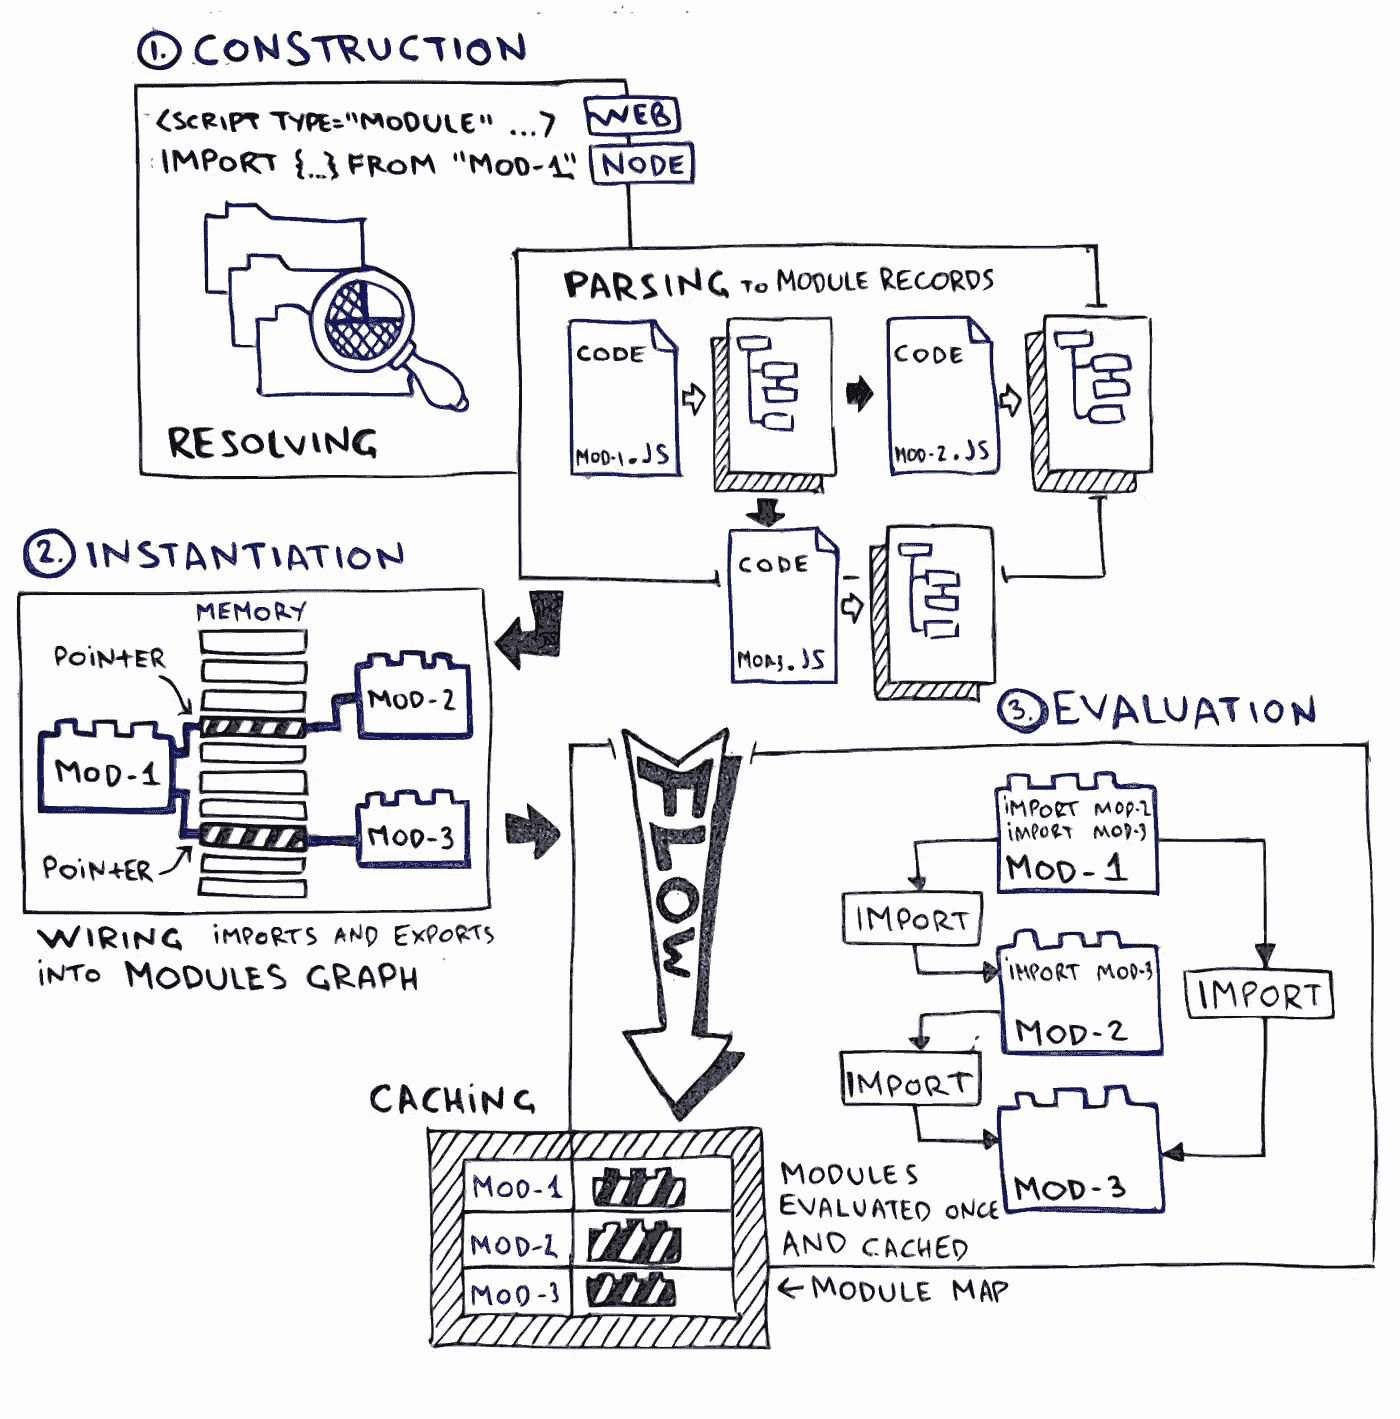 1. CONSTRUCTION
<SCRIPT TYPE="MODULE" ...>
WEB
IMPORT {...} FROM "MOD-1"
NODE
RESOLVING
PARSING TO MODULE RECORDS
CODE
MOD-1.JS
CODE
MOD-2.JS
CODE
MOD-3.JS
2. INSTANTIATION
MEMORY
POINTER
MOD-2
MOD-1
MOD-3
POINTER
WIRING IMPORTS AND EXPORTS
INTO MODULES GRAPH
FLOW
3. EVALUATION
IMPORT MOD-2
IMPORT MOD-3
MOD-1
IMPORT
IMPORT MOD-3
MOD-2
IMPORT
IMPORT
MOD-3
CACHING
MOD-1
MOD-2
MOD-3
MODULES
EVALUATED ONCE
AND CACHED
← MODULE MAP